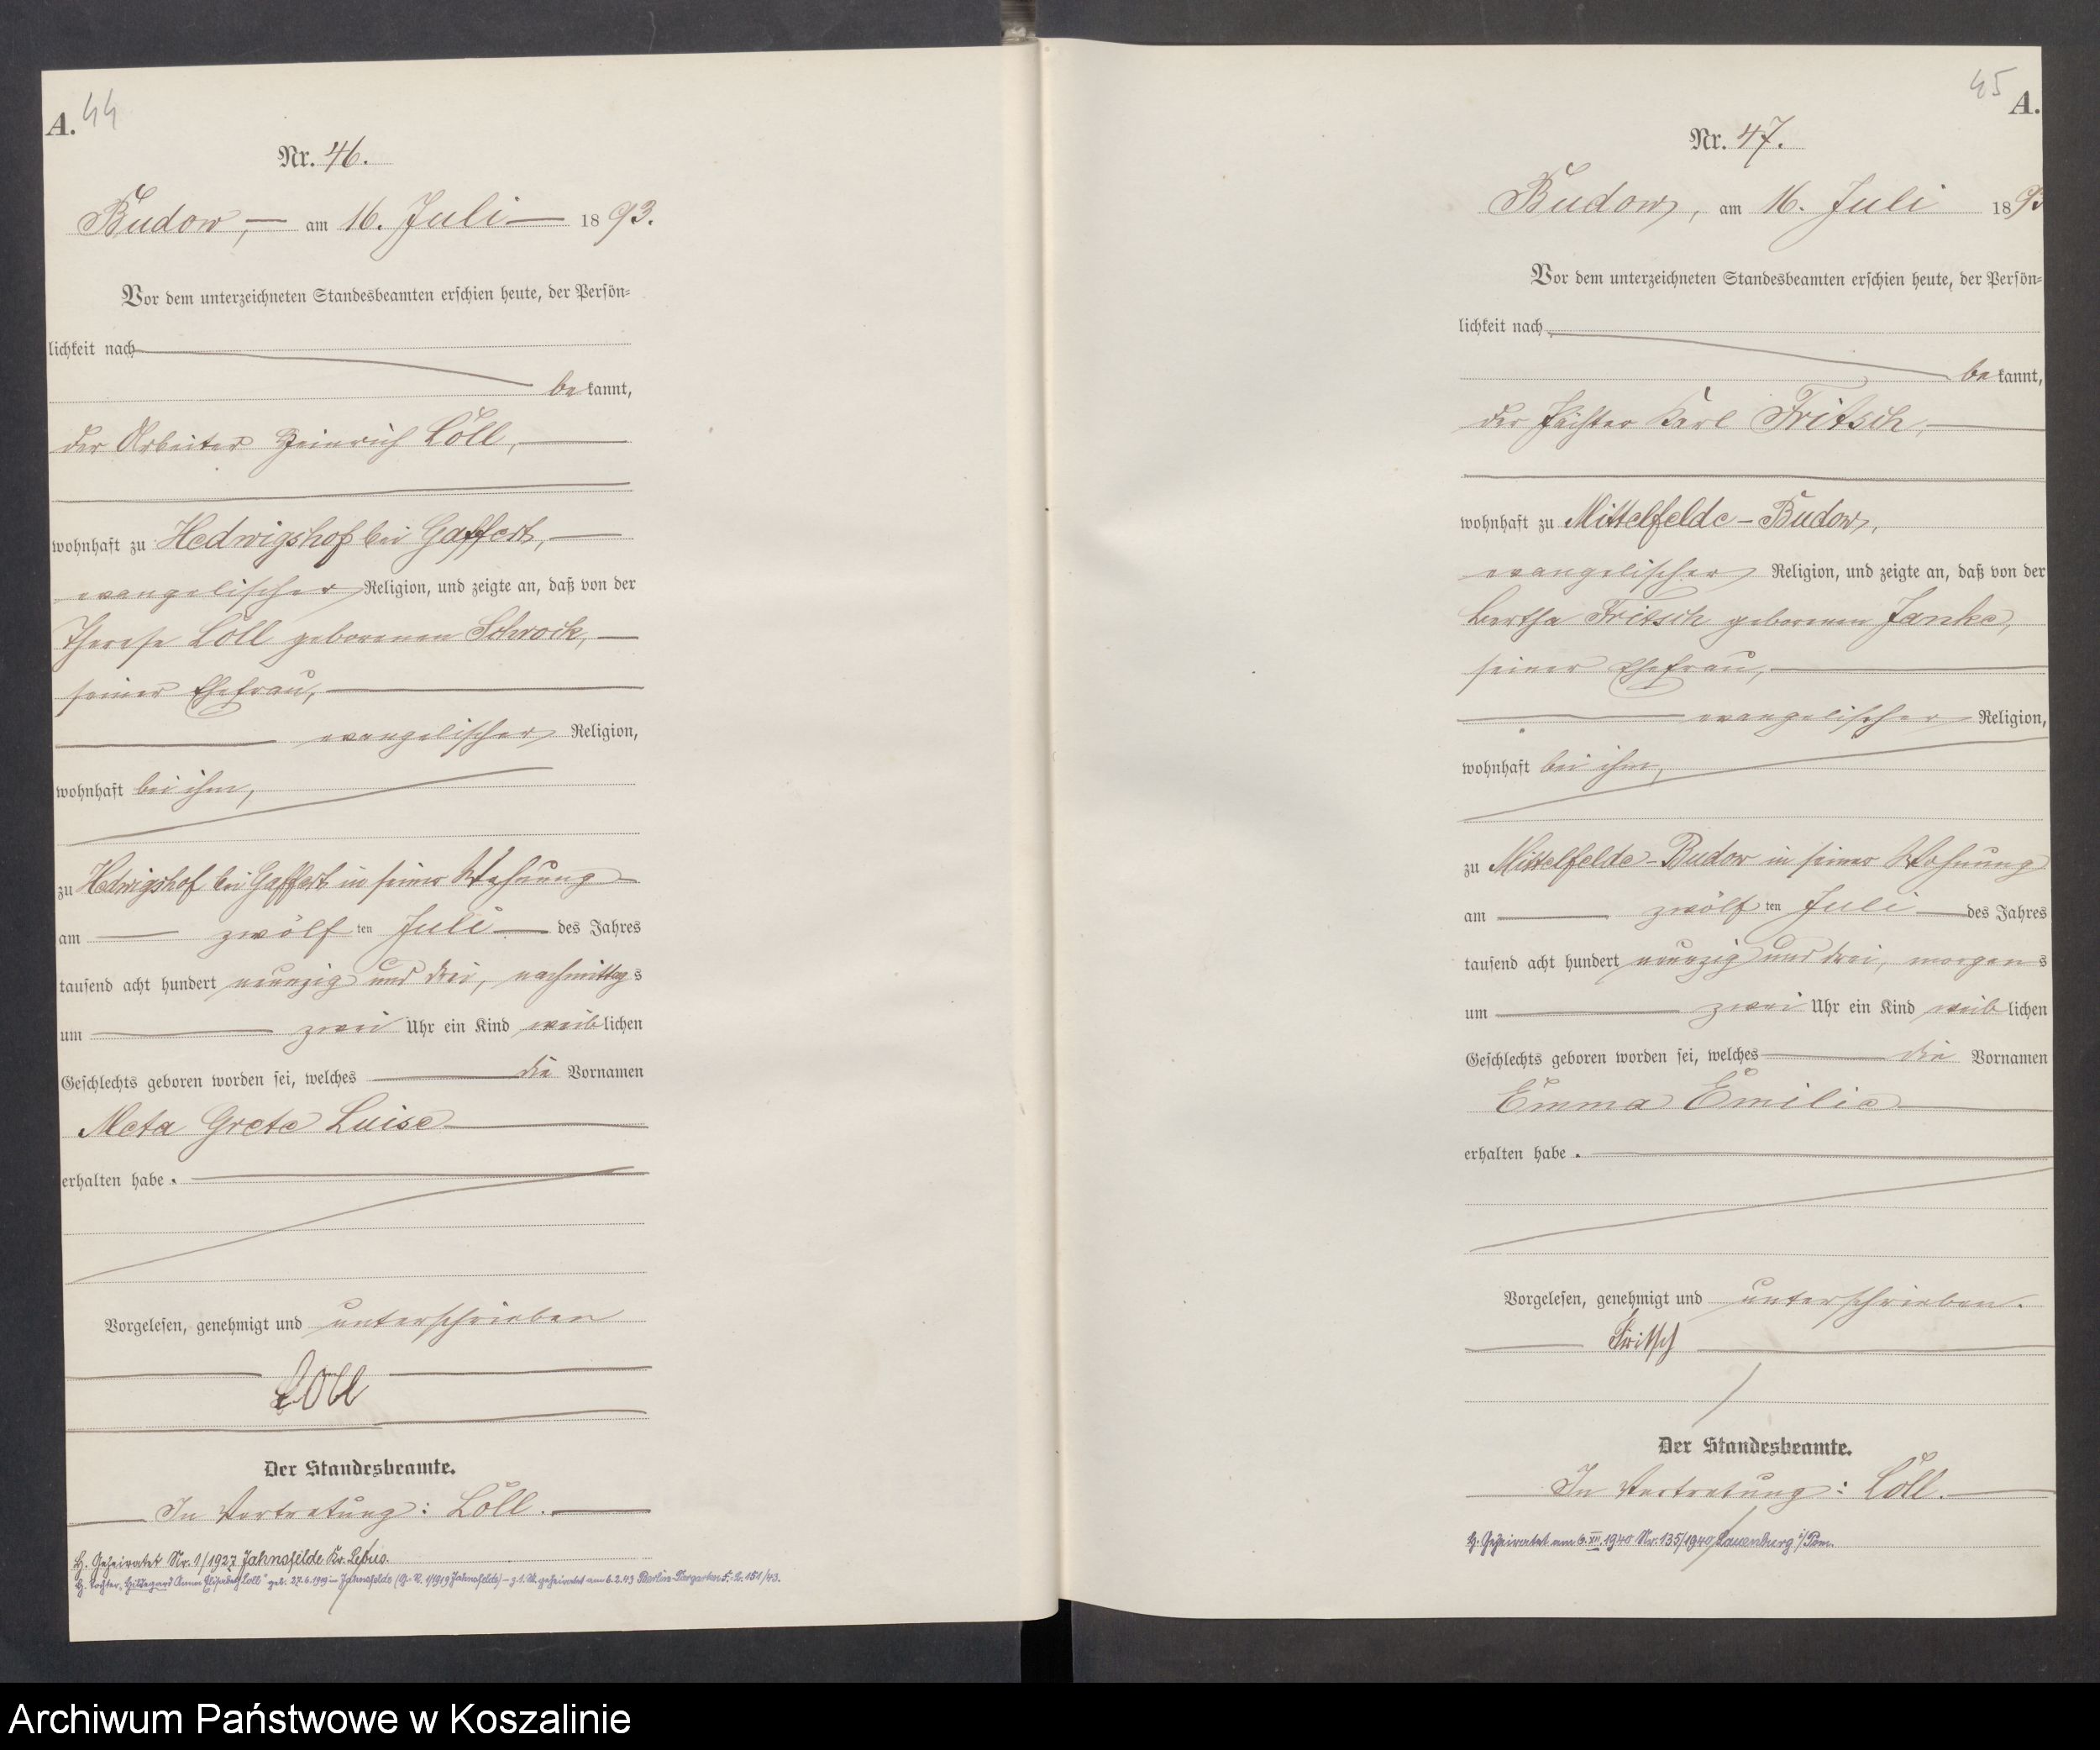 A. 44
Nr. 46.
Budow, am 16. Juli 1893.
Vor dem unterzeichneten Standesbeamten erschien heute, der Persön=
lichkeit nach
bekannt,
der Arbeiter Heinrich Löll,
wohnhaft zu Hedwigshof bei Gaffert,
evangelischer Religion, und zeigte an, daß von der
Therese Löll geborenen Schrock,
seiner Ehefrau,
evangelischer Religion,
wohnhaft bei ihm,
zu Hedwigshof bei Gaffert in seiner Wohnung
am zwölf ten Juli des Jahres
tausend acht hundert neunzig und drei, nachmittags
um zwei Uhr ein Kind weiblichen
Geschlechts geboren worden sei, welches die Vornamen
Meta Grete Luise
erhalten habe.
Vorgelesen, genehmigt und unterschrieben
Löll
Der Standesbeamte.
In Vertretung: Löll.
H. Geheiratet Nr. 1/1927 Jahnsfelde Kr. Lebus.
H. Tochter „Hildegard Anna Elisabeth Löll" geb. 27.6.1919 in Jahnsfelde (G. B. 1/1919 Jahnsfelde) – z. 1. M. geheiratet am 6.2.43 Berlin-Tiergarten 151/43.
45 A.
Nr. 47.
Budow, am 16. Juli 189
Vor dem unterzeichneten Standesbeamten erschien heute, der Persön=
lichkeit nach
bekannt,
der Pächter Karl Fritsch,
wohnhaft zu Mittelfelde-Budow,
evangelischer Religion, und zeigte an, daß von der
Bertha Fritsch geborenen Janke,
seiner Ehefrau,
evangelischer Religion,
wohnhaft bei ihm,
zu Mittelfelde-Budow in seiner Wohnung
am zwölf ten Juli des Jahres
tausend acht hundert neunzig und drei, morgens
um zwei Uhr ein Kind weiblichen
Geschlechts geboren worden sei, welches die Vornamen
Emma Emilie
erhalten habe.
Vorgelesen, genehmigt und unterschrieben.
Fritsch
Der Standesbeamte.
In Vertretung: Löll.
H. Geheiratet am 6.XII.1940 Nr. 135/1940 Lauenburg i/Pom.
Archiwum Państwowe w Koszalinie